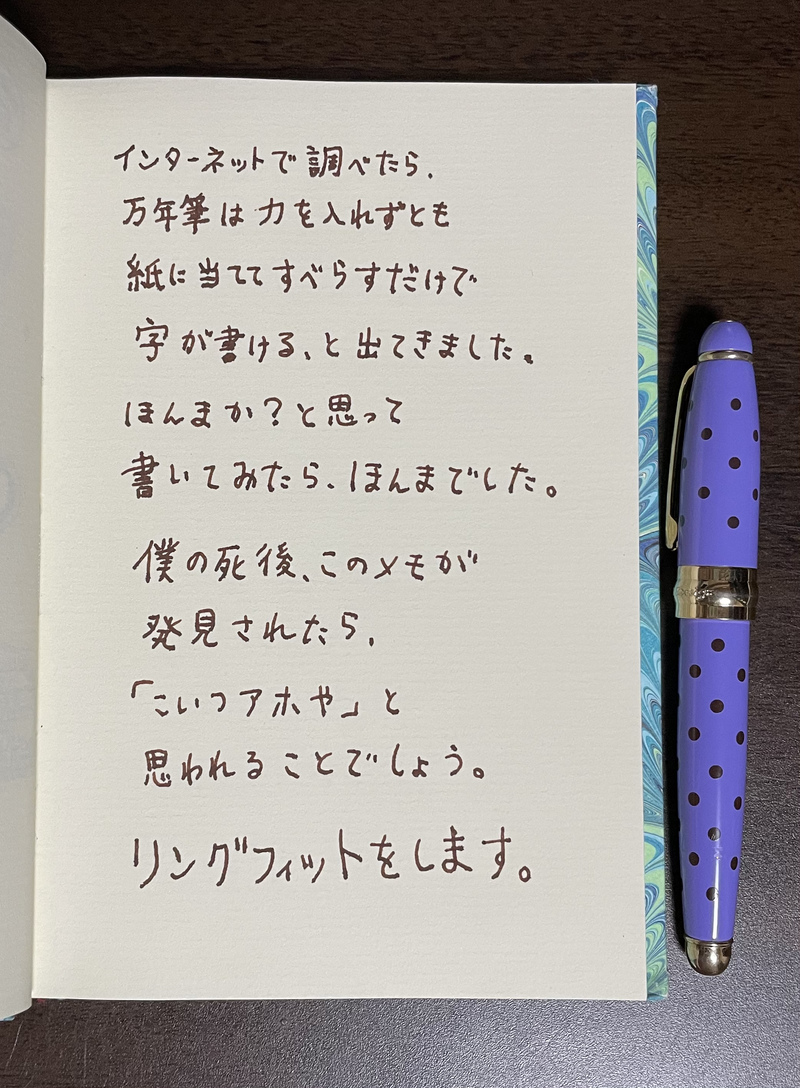 インターネットで調べたら、
万年筆は力を入れずとも
紙に当ててすべらすだけで
字が書ける、と出てきました。
ほんまか？と思って
書いてみたら、ほんまでした。
僕の死後、このメモが
発見されたら、
「こいつアホや」と
思われることでしょう。
リングフィットをします。